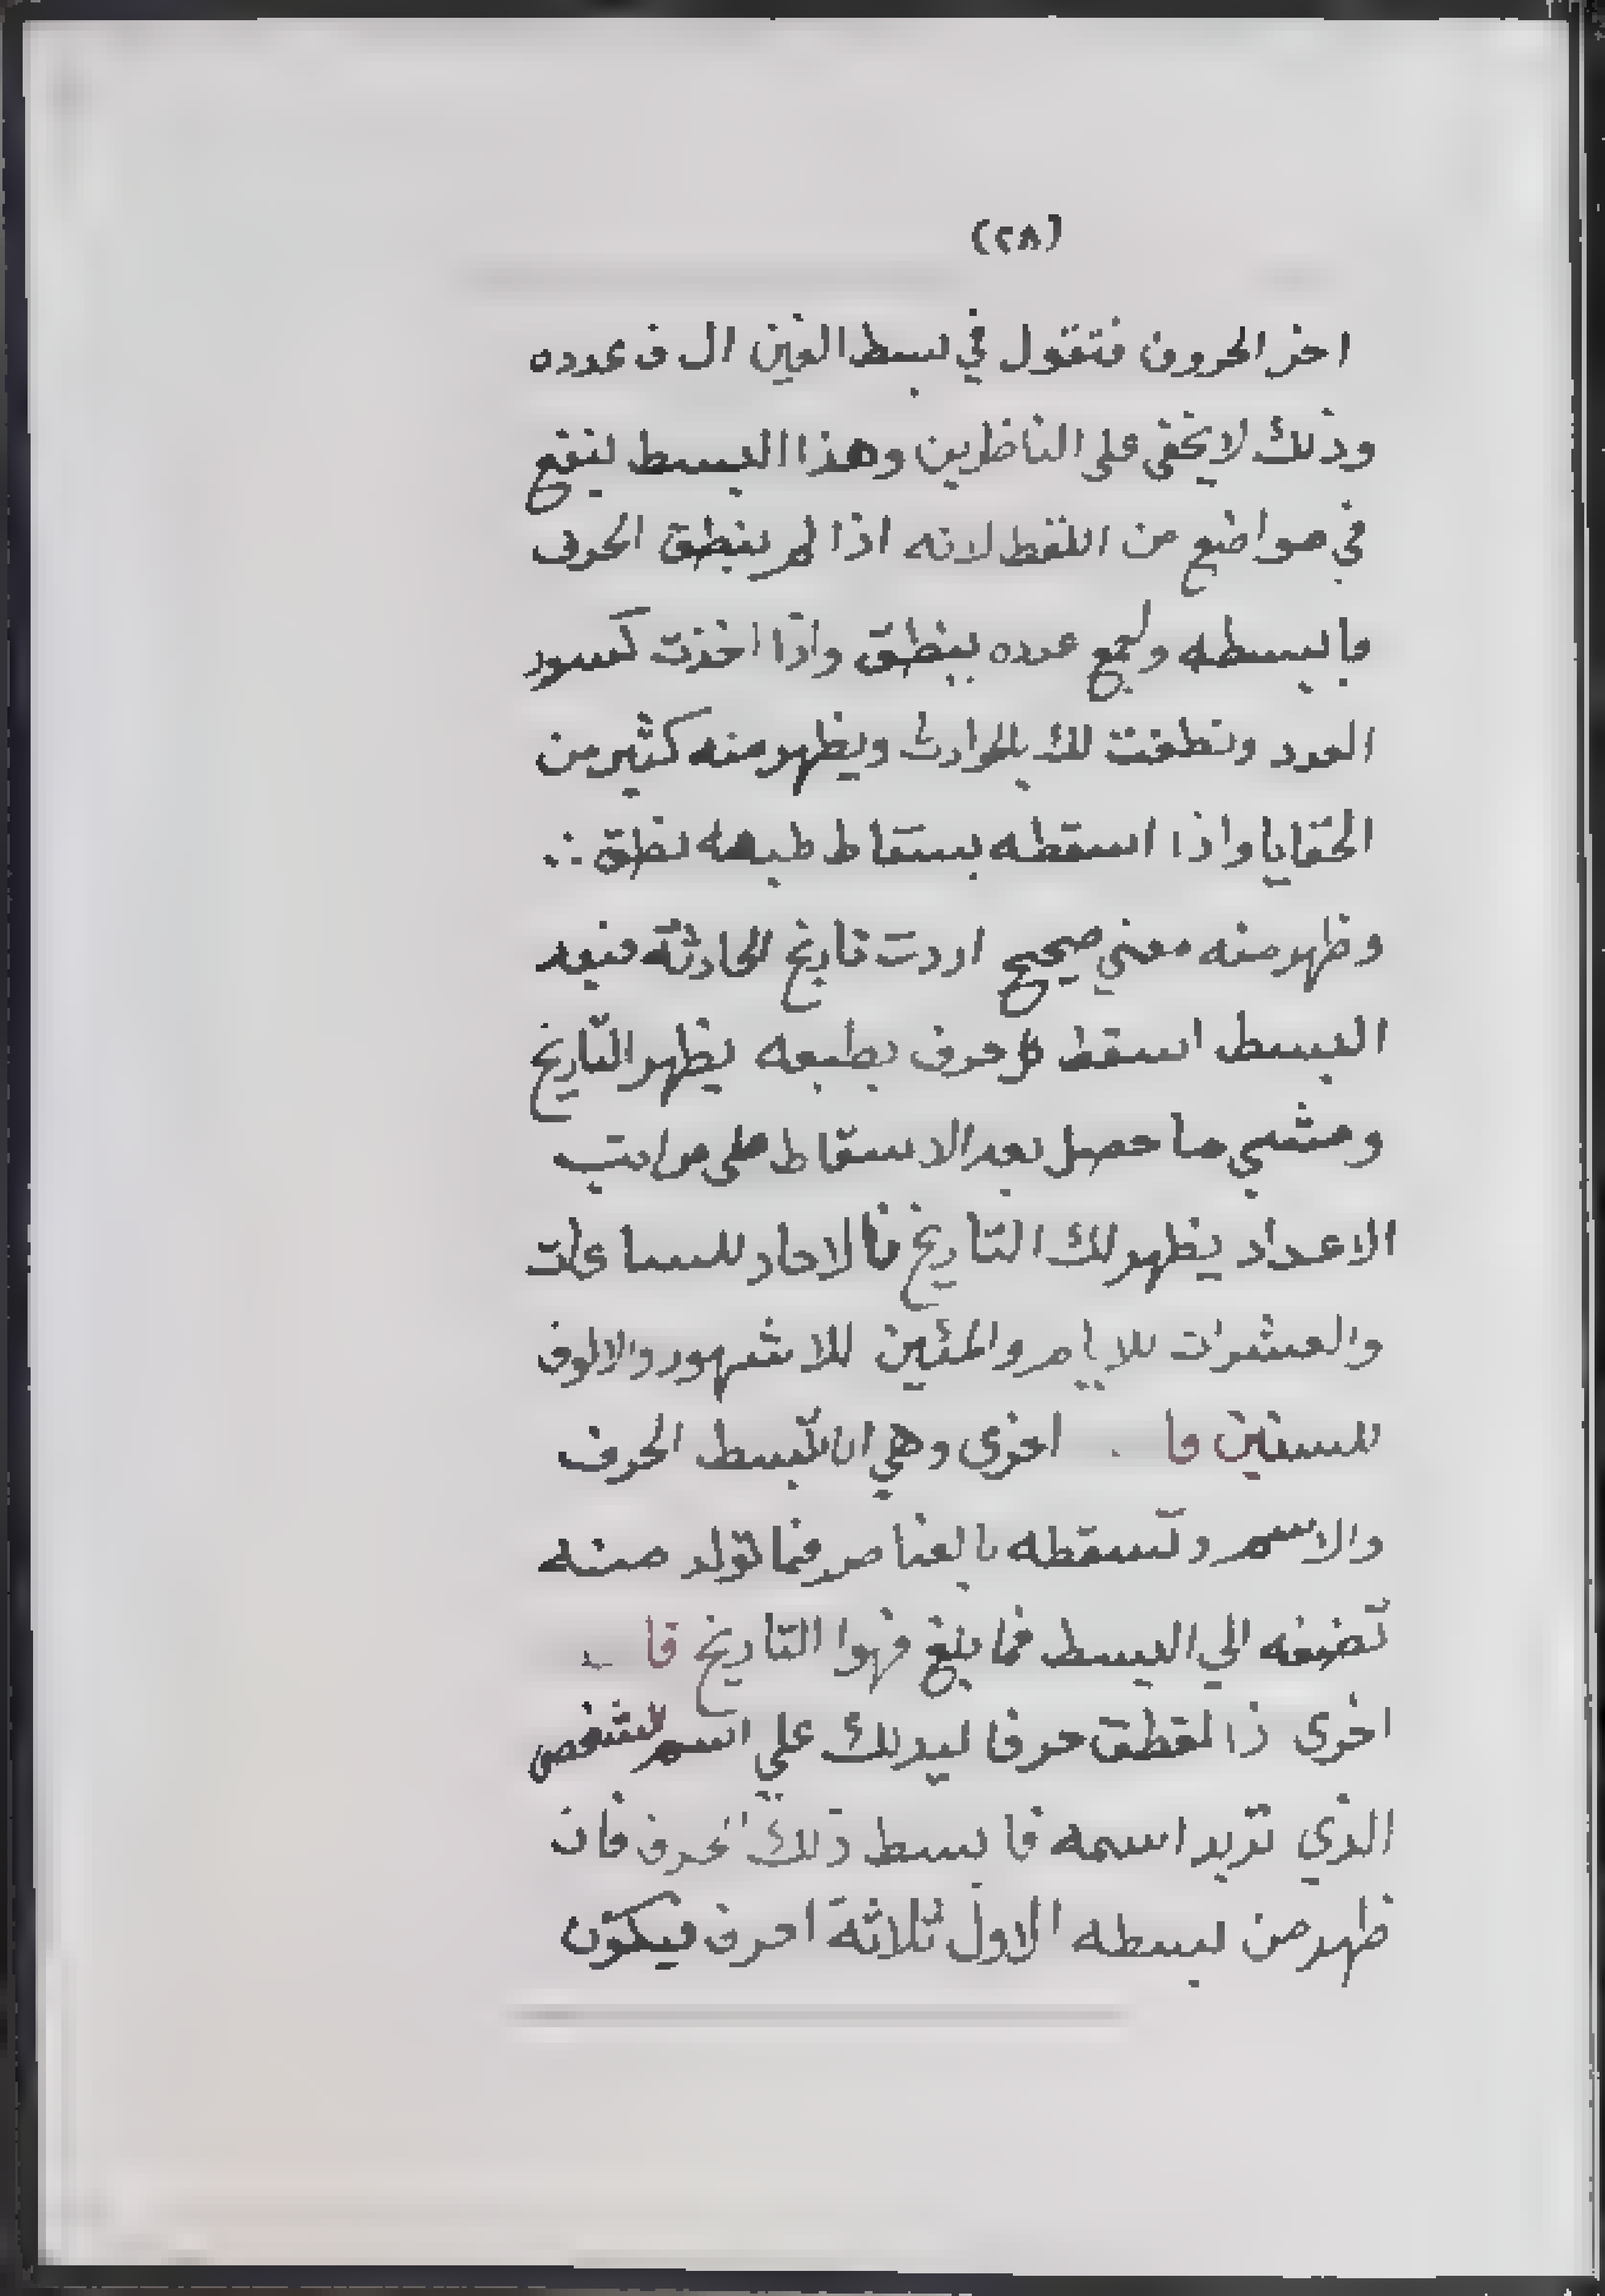 (٢٨)
اخر الحروف فتقول في بسط الغين ال ف عدده
وذلك لا يخفى على الناظرين وهذا البسط لينفع
في مواضع من اللقط لانه اذا لم ينطق الحرف
بالبسطه ولجمع عدده ينطق واذا اخذت كسور
العدد ونطقت لك بالحوادث ويظهر منه كثير من
الخفايا واذا اسقطه بسقاط طبعه نطق ∴
وظهر منه معني صحيح اردت تاريخ الحادثة فبعد
البسط اسقط كل حرف بطبعه يظهر التاريخ
ومشي ما حصل بعد الاسقاط على مراتب
الاعداد يظهر لك التاريخ فالاحاد للساعات
والعشرات للايام والمئين للاشهور والالوف
للسنين فا اخرى وهي ان تبسط الحرف
والاسم وتسقطه بالعناصر فما تولد منه
تضفه الي البسط فما بلغ فهوا التاريخ فا
اخرى ذا لقطت حرفا ليدلك علي اسم الشخص
الذي تريد اسمه فابسط ذلك الحرف فان
ظهر من بسطه الاول ثلاثة احرف فيكون